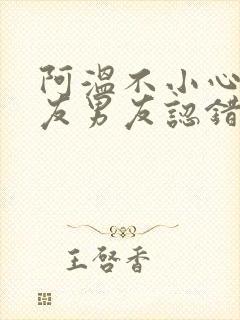 阿溫不小心
友男友認錯
王啓香